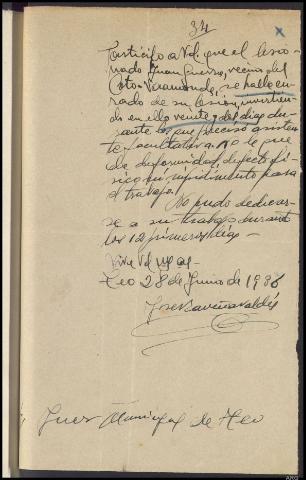 34
Participo a Vd que el lesio-
nado Juan Guerra, vecino del
Coto-Viramonde, se halla cu-
rado de su lesion, invirtien-
do en ello veinte y del dias du-
rante los que precisó asisten-
te facultativa. No le que
da deformidad, defecto fi-
sico ni impedimento para
el trabajo.
No pudo dedicar-
se a su trabajo durante
los 12 primeros dias -
Viva Vd
Teo 28 de Junio de 1936
Jose Valdés
Juez Municipal de Teo